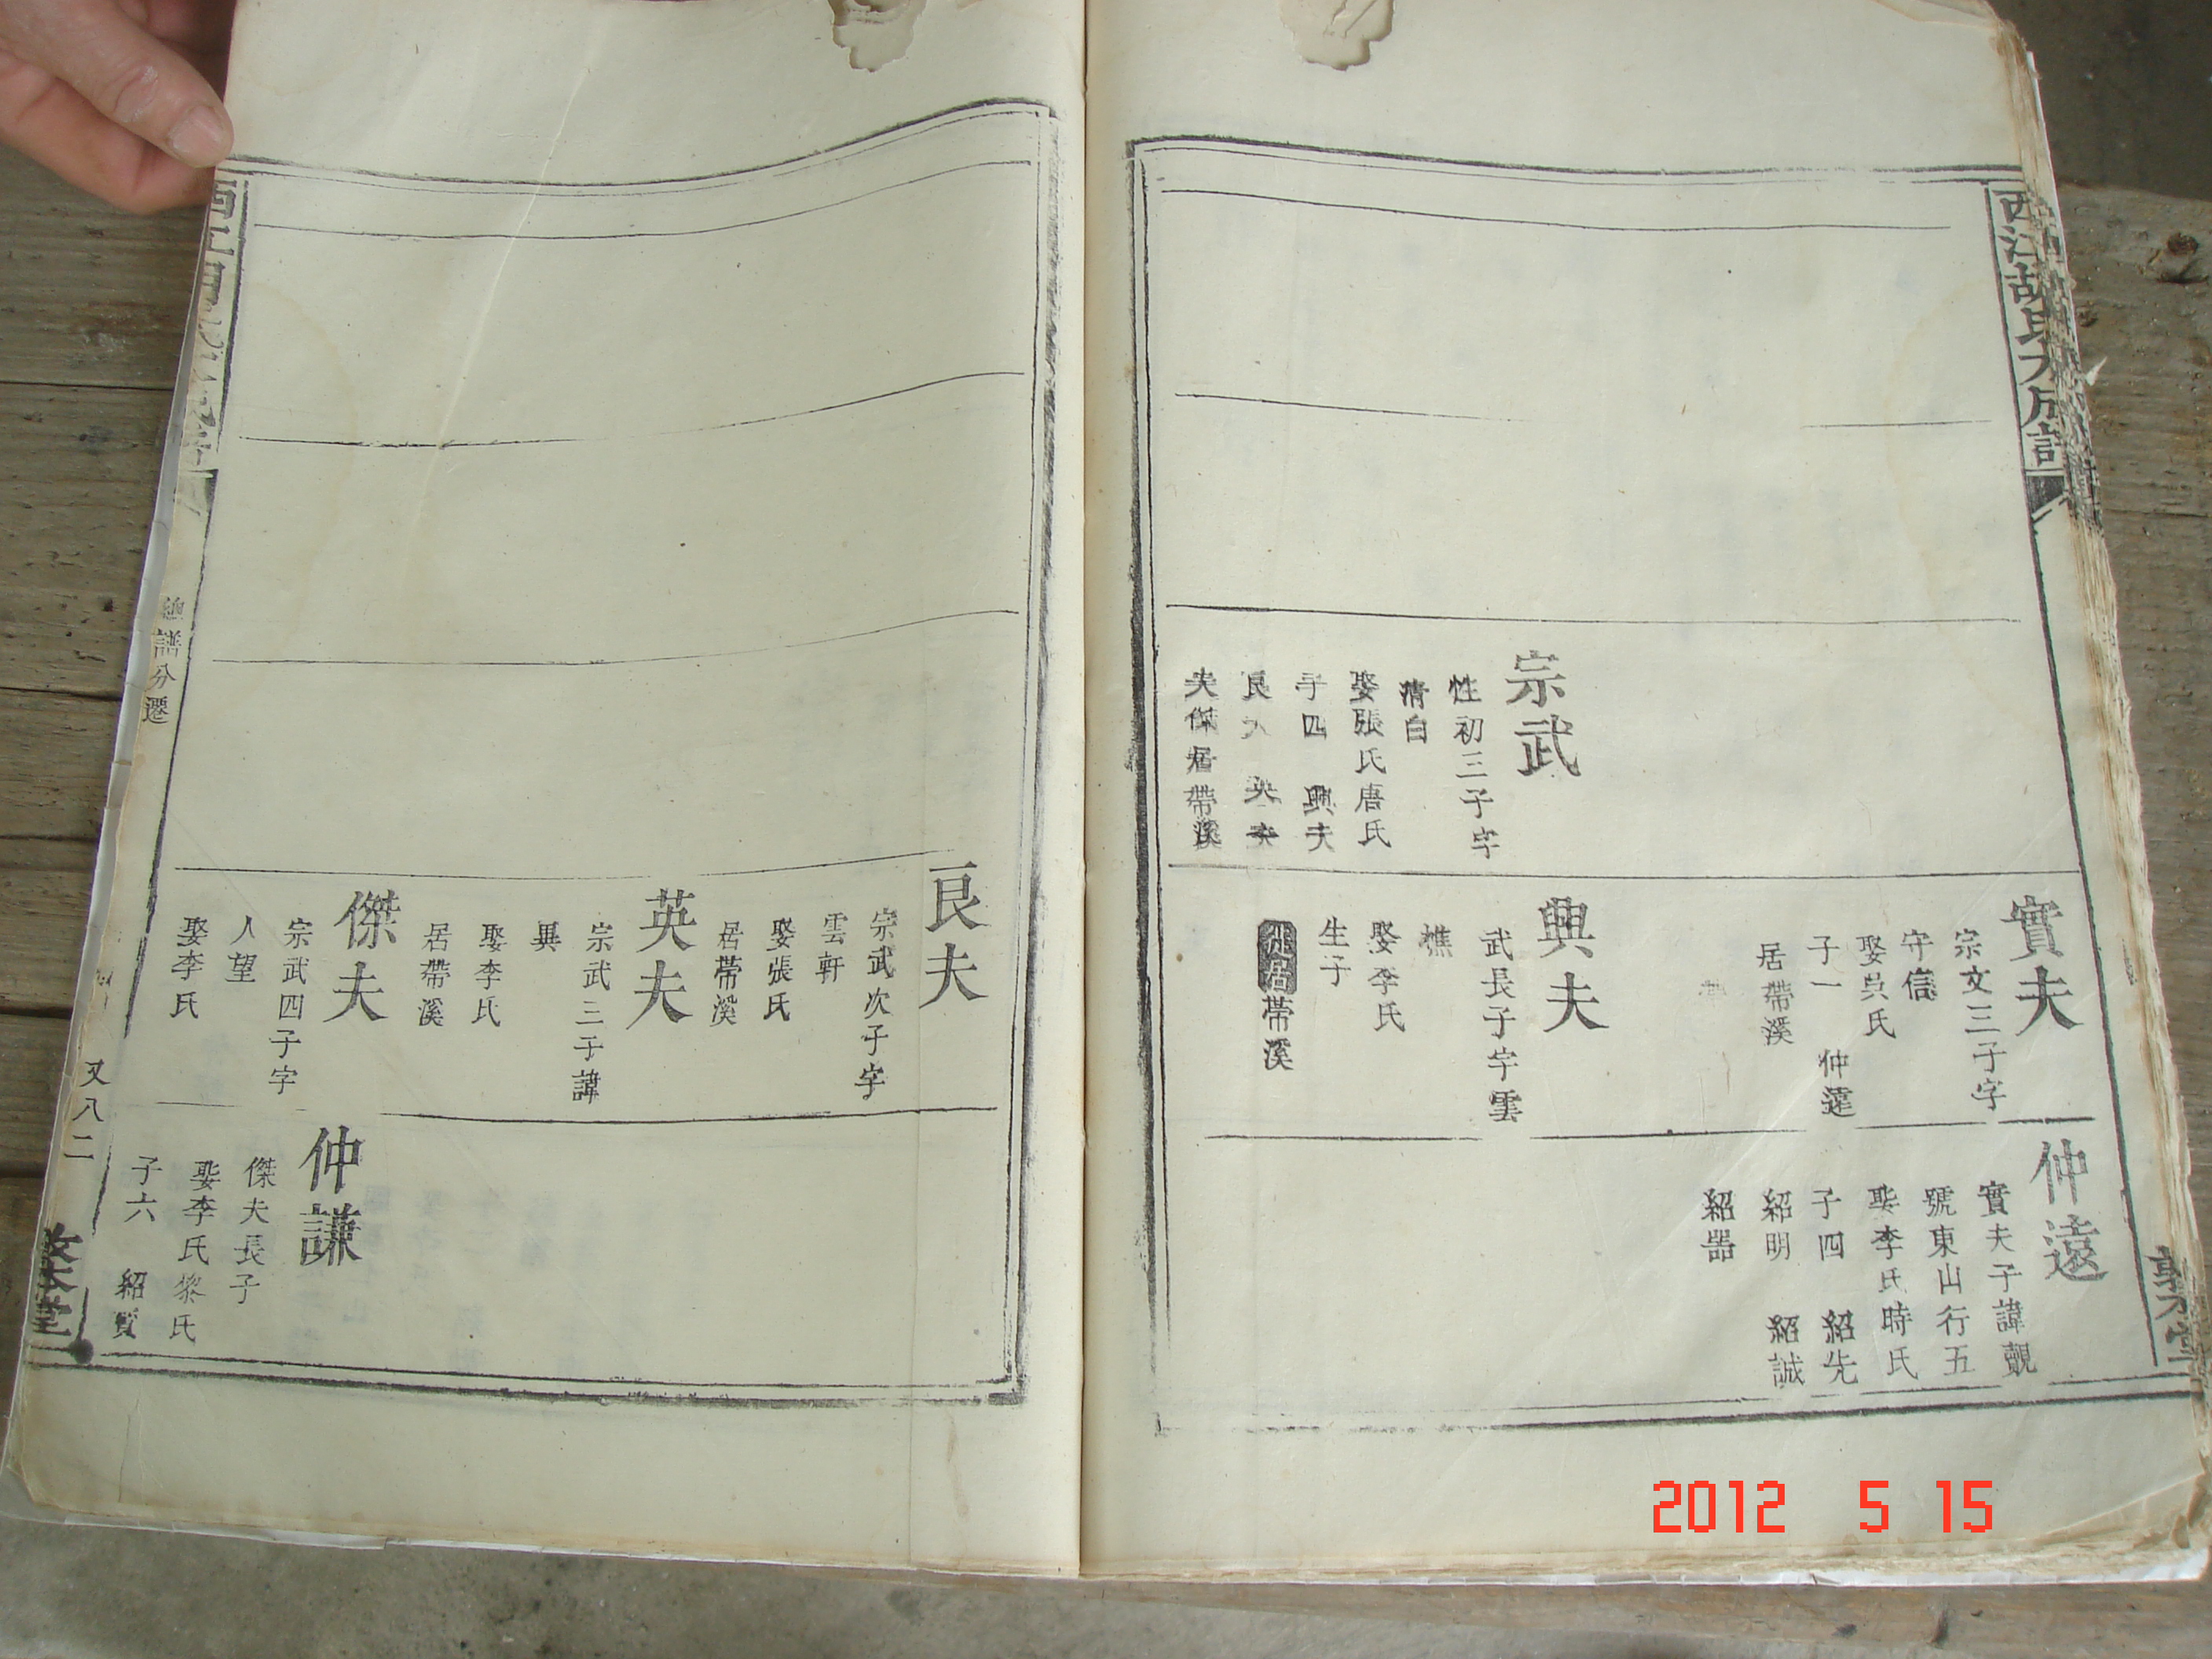 西江胡氏大成譜
實夫
宗文三子字
守信
娶吳氏
子一 仲遠
居帶溪
仲遠
實夫子諱觀
號東山行五
娶李氏時氏
子四 紹先
紹明 紹誠
紹器
宗武
性初三子字
清白
娶張氏唐氏
子四 興夫
良夫 英夫
夫傑居帶溪
興夫
武長子字雲
樵
娶李氏
生子
徙居帶溪
敦本堂
良夫
宗武次子字
雲軒
娶張氏
居帶溪
英夫
宗武三子諱
異
娶李氏
居帶溪
傑夫
宗武四子字
人望
娶李氏
仲謙
傑夫長子
娶李氏黎氏
子六 紹賢
譜分遷
又八二
敦本堂
2012 5 15